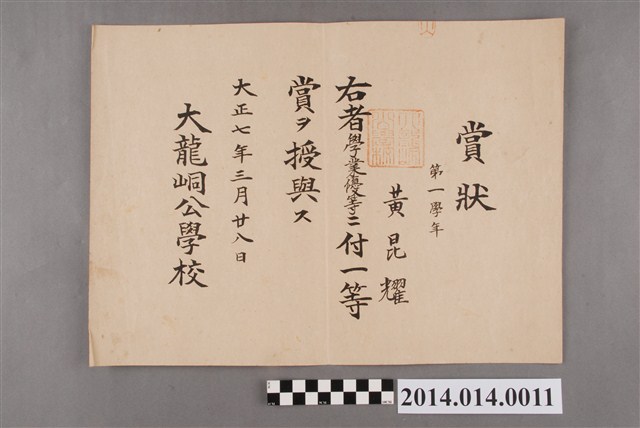 賞狀
第一學年
黃昆耀
右者學業優等ニ付一等
賞ヲ授與ス
大正七年三月廿八日
大龍峒公學校
2014.014.0011